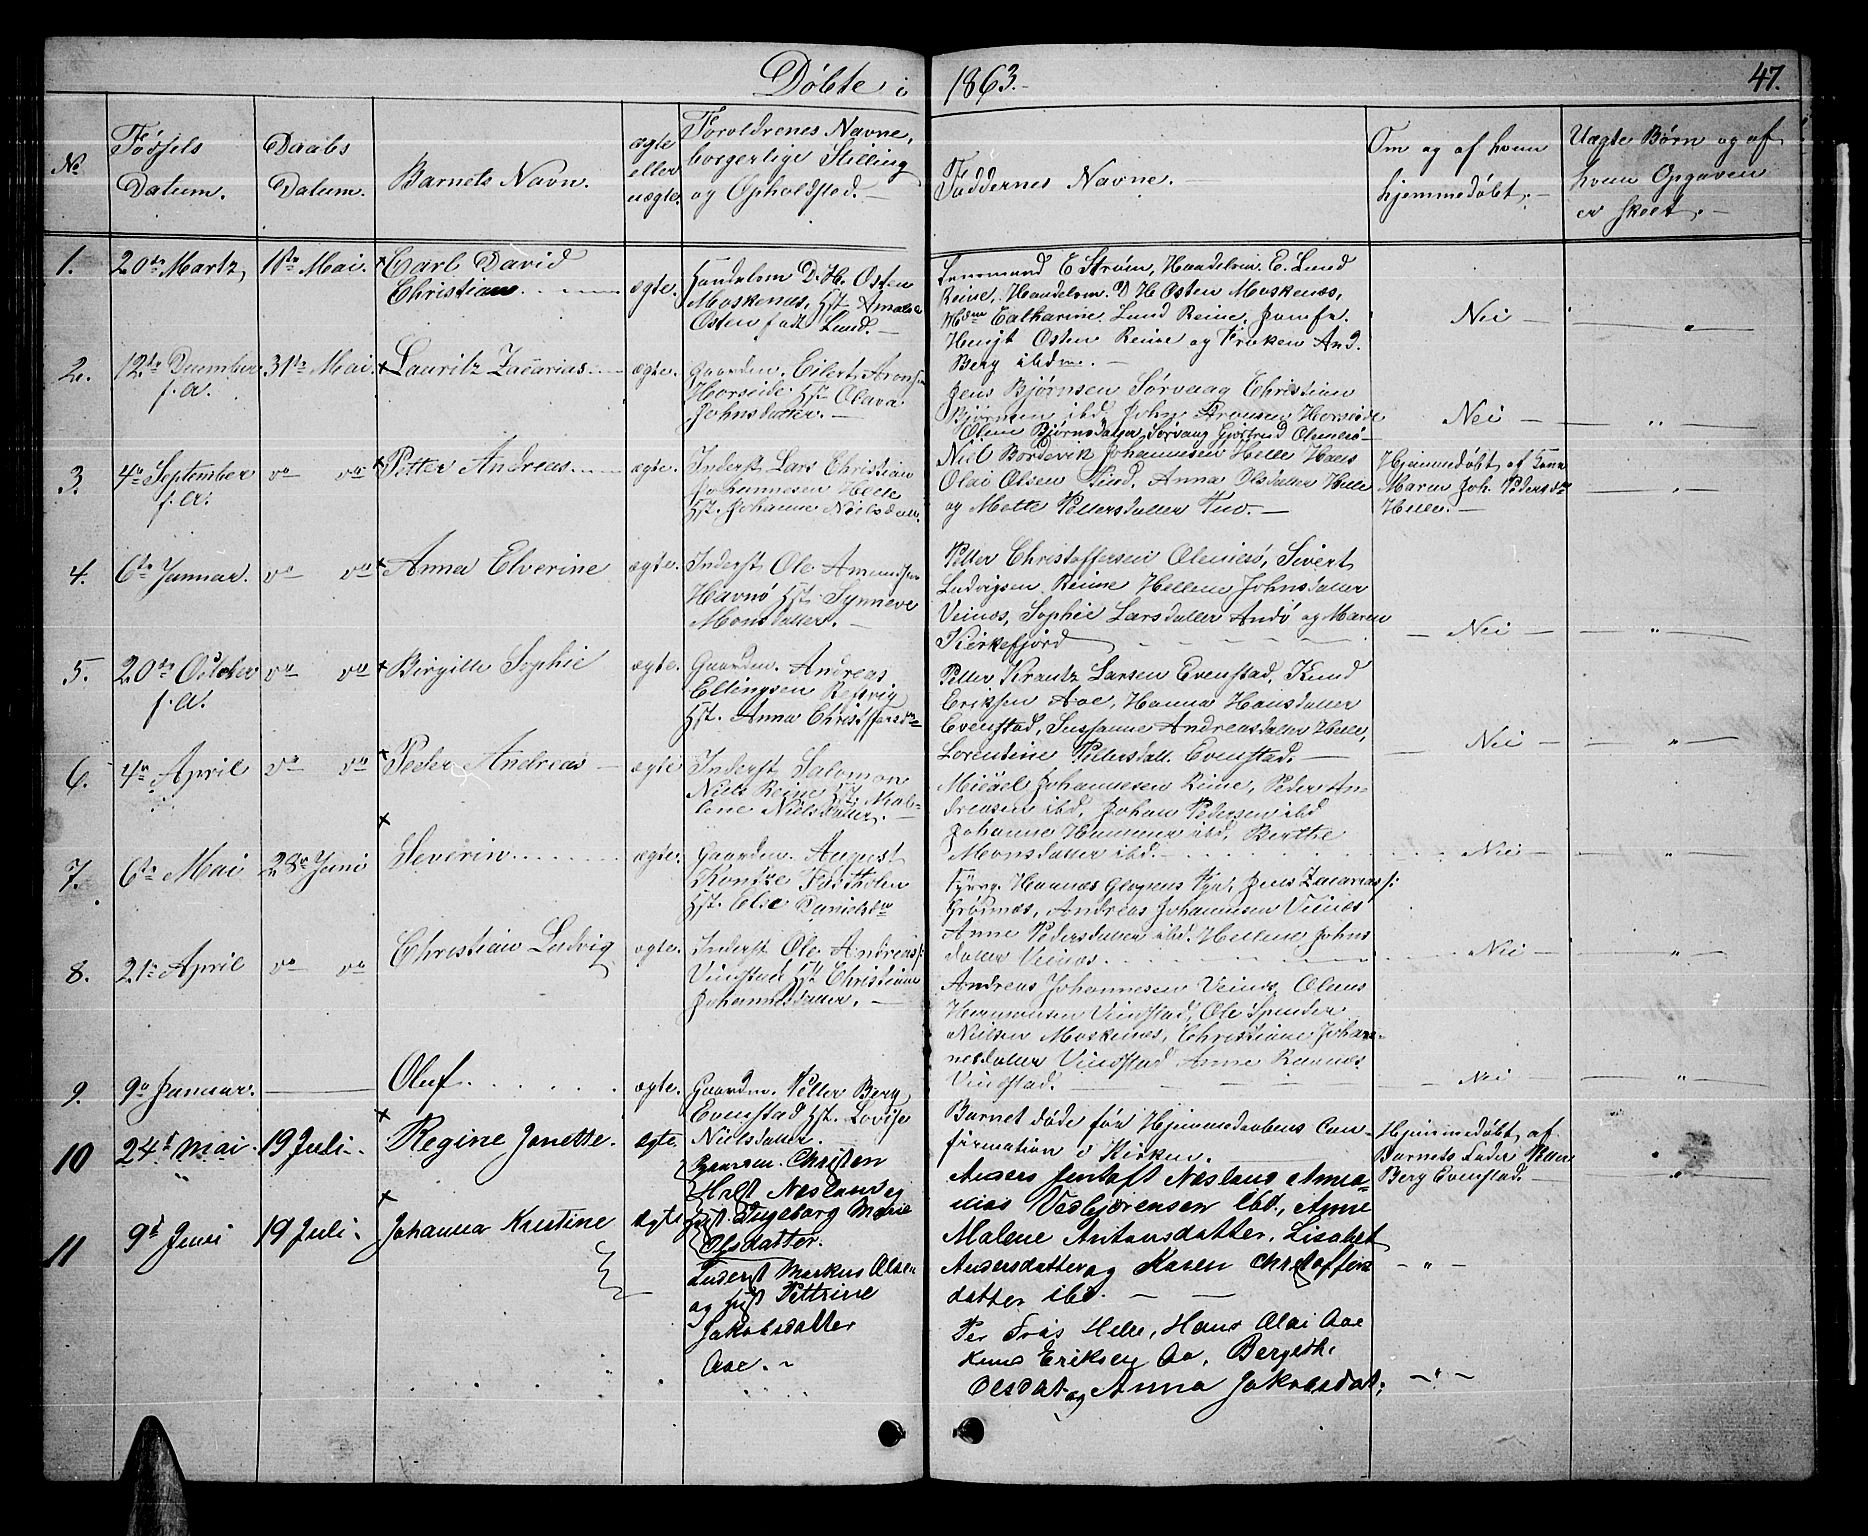 Døbte i 1863.
47.
No
Fødsels Datum.
Daabs Datum.
Barnets Navn.
ægte eller uægte.
Forældrenes Navne, borgerlige Stilling og Opholdsted.
Faddernes Navne.
Om og af hvem hjemmedøbt.
Uægte Børn og af hvem Opgaven er skeet.
1. 20de Martz 1ste Mai. Carl David
Christian ægte.
Handelsm D. H. Osten
Moskenæs, Hst. Amalie
Osten fød Lund.
Lensmand E Strøm, Handelsm. E. Lund
Reine, Handelsm. D H Osten Moskenæs,
Mdm Catharine Lund Reine, Jomfr.
Osten Reine og Frøken And.
Berg ibdm.
Nei
2. 12te December 31te Mai Lauritz Zacarias ægte.
f. A.
Gaardm. Eilert Arons
Horseide Hst Olava
Johnsdatter.
Jens Bjørnsen Sørvaag Christian
Bjørnsen ibd, John Aronsen Horseide
Oline Bjørnsdatter Sørvaag Gjertrud Olenilsø
Nei
3. 4de September do do Petter Andreas ægte.
f. A.
Inderst Lars Christian
Johannesen Helle
Hst. Johanne Neilsdatt.
Niel Bordevik Johannesen Helle Hans
Olai Olsen Tind, Anna Olsdatter Helle
og Mette Pettersdatter Tuv.
Hjemmedøbt af Kona
Maren Joh. Pedersdtr
Helle.
4. 6te Januar. do do Anna Elverine ægte.
Inderst Ole Amundsen
Havnø Hst. Synneve
Monsdatter.
Petter Christoffersen Olenilsø, Sivert
Ludvigsen Reine Hellene Johnsdatter
Veinæs, Sophie Larsdatter Andø og Maren
Kirkefjord
Nei
5. 20de October do do Birgitte Sophie ægte.
f. A.
Gaardm. Andreas
Ellingsen Refsvig
Hst. Anna Christoffersdtr
Petter Krantz Larsen Evenstad, Knud
Eriksen Aae, Hanna Hansdatter
Evenstad, Susanne Andreasdatter Helle,
Lorentine Pettersdatt. Evenstad.
Nei
6. 4de April do do Peder Andreas ægte
Inderst Salomon
Niels Reine Hst. Mal-
lene Nielsdatter.
Micael Johannesen Reine, Peder An-
dreasen ibd, Johan Pedersen ibd
Johanne Hammer ibd, Berthe
Monsdatter ibd.
Nei
7. 6te Mai 28de Juni Severin ægte.
Gaardm. August
Kontze
Hst. Elie Danielsdtr
Hannæs Jens Zacarias/:
Andreas Johannesen Veinæs
Anne Pedersdatter ibd. Hellene Johns
datter Veinæs.
Nei
8. 21de April do do Christian Ludvig ægte.
Inderst Ole Andreas/:
Vindstad Hst Christiane
Johannesdatter.
Andreas Johannesen Veinæs Olaus
Hermansen Vindstad, Ole Spender
Nielsen Moskenæs, Christiane Johan-
nesdatter Vindstad Anne
Vindstad.
Nei
9. 9de Januar. Oluf. ægte.
Gaardm. Petter Berg
Evenstad Hst. Lovise
Nielsdatter.
Barnet døde før Hjemmedaabens Con-
firmation i Kirken.
Hjemmedøbt af
Barnets Fader Petter
Berg Evenstad.
10 24d Mai 19 Juli. Regine Janette. Ægte
Gaardm. Christen
Næsland og
Hust. Ingeborg Marie
Olsdatter.
Anders Jentoft Næsland
Vedbjørensen ibd., Anne
Malene Antonsdatter, Lisabet
Andersdatter og Karen Christoffers
datter ibd.
11 9d Juni 19 Juli. Johanna Kristine Ægte
Inderst Markus Olsen
og Hust Pettrine
Jakobsdatter
Aae.
Per Friis Helle, Hans Olai Aae
Knud Eriksen Aa, Bergeth.
Olsdat og Anna Jakobsdat;